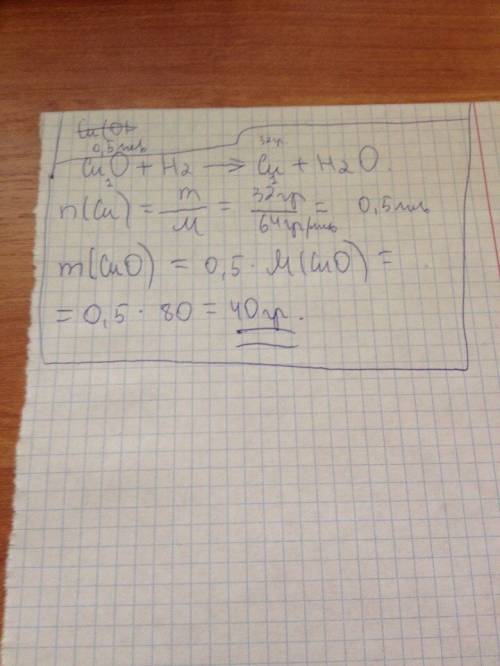 Cu(OH
0,5 моль 32 гр
CuO + H2 → Cu + H2O.
1 1
n(Cu) = m/M = 32 гр/64 гр/моль = 0,5 моль
m(CuO) = 0,5 · M(CuO) =
= 0,5 · 80 = 40 гр.